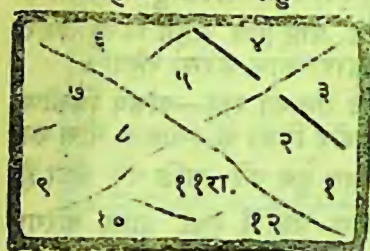 ६ ४
५
७ ३
८ २
९ ११रा. १
१० १२